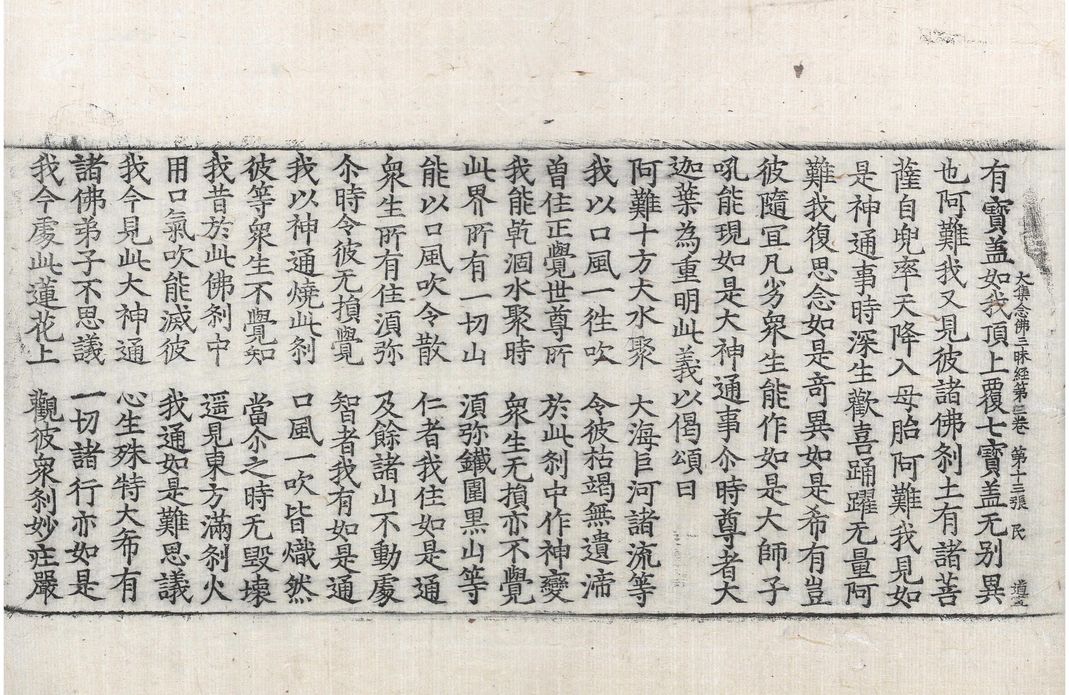 大集念佛三昧経第三巻　第十三張　民　道五
有寶盖如我頂上覆七寶盖无别異
也阿難我又見彼諸佛刹土有諸菩
薩自兜率天降入母胎阿難我見如
是神通事時深生歡喜踊躍无量阿
難我復思念如是竒異如是希有豈
彼隨冝凡劣衆生能作如是大師子
吼能現如是大神通事尒時尊者大
迦葉為重明此義以偈頌曰
阿難十方大水聚　大海巨河諸流等
我以口風一徃吹　令彼枯竭無遺渧
曽住正覺世尊所　於此刹中作神變
我能乾涸水聚時　衆生无損亦不覺
此界所有一切山　湏弥鐵圍黒山等
能以口風吹令散　仁者我住如是通
衆生所有住湏弥　及餘諸山不動處
尒時令彼无損覺　智者我有如是通
我以神通燒此刹　口風一吹皆熾然
彼等衆生不覺知　當尒之時无毀壊
我昔於此佛刹中　遥見東方滿刹火
用口氣吹能滅彼　我通如是難思議
我今見此大神通　心生殊特大希有
諸佛弟子不思議　一切諸行亦如是
我今處此蓮花上　觀彼衆刹妙㽵嚴